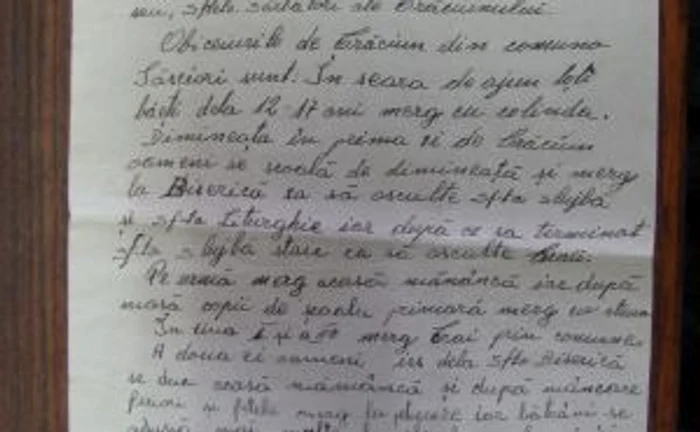 sfte. sărbători ale Crăciunului
Obiceiurile de Crăciun din comuna
sunt. În seara de ajun toți
băeți dela 12-17 ani merg cu colinda.
Dimineața în prima zi de Crăciun
oameni se scoală de dimineață și merg
la Biserică ca să asculte sfta slujba
și sfta Liturghie iar după ce sa terminat
sfta slujba stare ca să asculte
Pe urmă merg acasă mănâncă iar după
masă copii de școala primară merg cu steaua
În ziua merg Crai prin comuna.
A doua zi oameni, ies dela sfta Biserică
se duc acasă mănâncă și după mâncare
și fetele merg la iar bătrâni se
mai multe